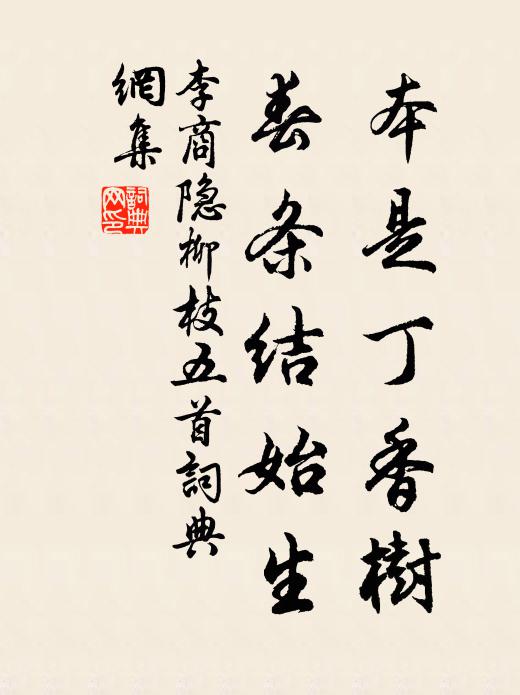 本是丁香樹
春条结始生
李商隐柳枝五首詞典
網集
詞典网印